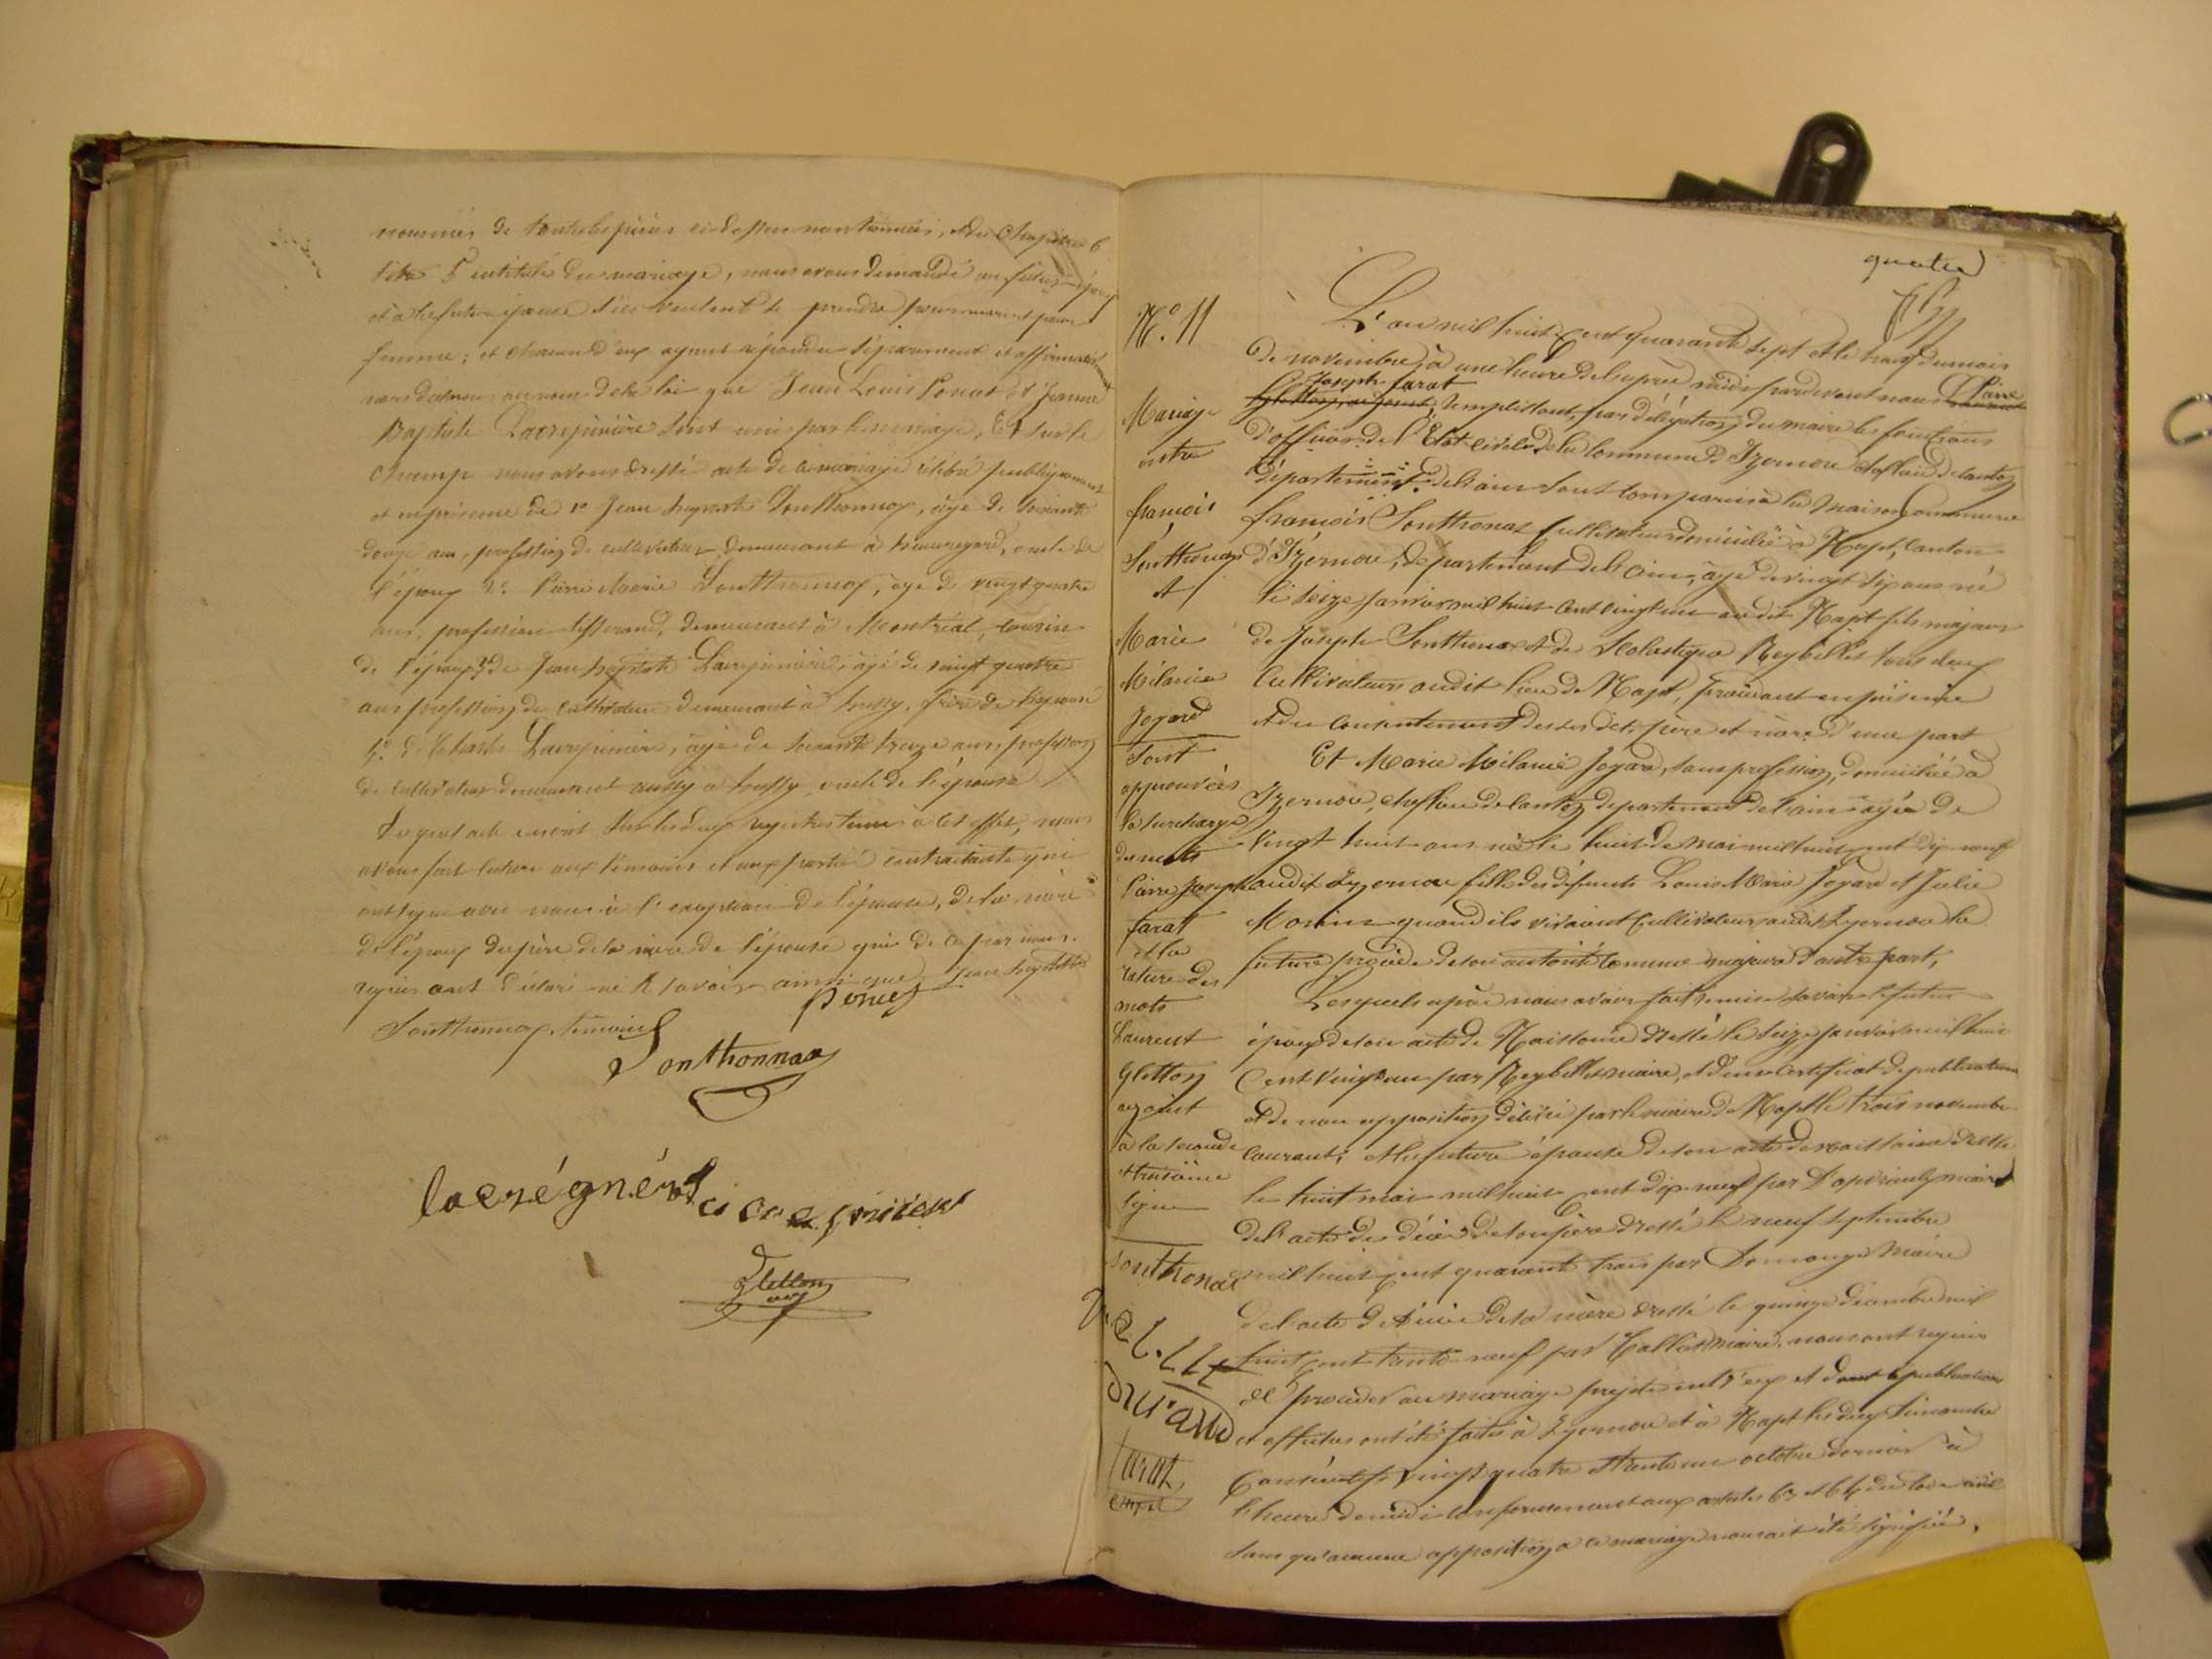 nommés de toutes les pièces ci-dessus mentionnées, et du Chapitre 6
titre 5 intitulé du mariage, nous avons demandé au futur époux
et à la future épouse s'ils veulent se prendre pour mari et pour
femme; et chacun d'eux ayant répondu séparément et affirmativement
nous déclarons au nom de la loi que Jean Louis Poncet et Jeanne
Baptiste sont unis par le mariage, Et sur le
champ nous avons dressé acte de ce mariage célébré publiquement
et en présence de 1º Jean Baptiste Sonthonnax, âgé de soixante
douze ans, profession de cultivateur demeurant à Beauregard, oncle de
l'époux 2º Pierre Marie Sonthonnax, âgé de vingt quatre
ans, profession tisserand, demeurant à Montréal, cousin
de l'époux 3º de Jean Baptiste âgé de vingt quatre
ans profession de cultivateur demeurant à Bussy, frère de l'épouse
4º de Charles âgé de soixante treize ans, profession
de cultivateur demeurant aussy à Bussy, oncle de l'épouse
Duquel acte inscrit sur les deux registres tenus à cet effet, nous
avons fait lecture aux témoins et aux parties contractante qui
ont signé avec nous à l'exception de l'épouse, de la mère
de l'époux du père de la mère de l'épouse qui de ce par nous
requis ont déclaré ne le savoir ainsi que Jean Baptiste
Sonthonnax témoin
Poncet
Sonthonnax
lacrégnér
Gletton
quatre
Nº. 11
Mariage
entre
françois
Sonthonax
et
Marie
Mélanie
Jogard
Sont
approuvées
la surcharge
des mots
Pierre Joseph
farat
et la
rature des
mots
Laurent
Gletton
ajoint
à la seconde
et troisième
ligne
sonthonax
farat
L'an mil huit cent quarante sept et le trois du mois
de novembre, à une heure de l'après midi par devant nous Pierre
Joseph farat
Gletton, ajoint, remplissant par délégation du maire les fonctions
d'officier de l'Etat civil de la Commune d'Izernore cheflieu de canton
département de l'ain sont comparus à la Maison Commune
françois Sonthonax Cultivateur domicilié à Napt, canton
d'Izernore, département de l'ain, âgé de vingt six ans né
le seize janvier mil huit cent vingt un au dit Napt fils majeur
de Joseph Sonthonax et de Scholastique Reybillet tous deux
Cultivateurs au dit lieu de Napt, procédant en présence
et du consentement de ses dits père et mère d'une part
Et Marie Mélanie Jogard, sans profession, domiciliée à
Izernore, cheflieu de canton département de l'ain âgée de
vingt huit ans née le huit de mai mil huit cent dix neuf
audit Izernore fille des défunts Louis Marie Jogard et Julie
Morin quand ils vivaient Cultivateurs audit Izernore la
future procède de son autorité comme majeure d'autre part,
Lesquels après nous avoir fait remise savoir le futur
époux de son acte de Naissance dressé le seize janvier mil huit
Cent vingt un par Reybillet maire, et d'un Certificat de publication
et de non opposition délivré par le maire de Napt le trois novembre
courant; et la future épouse de son acte de naissance dressé
le huit mai mil huit cent dix neuf par maire
de l'acte de décès de son père dressé le neuf septembre
mil huit cent quarante trois par Domange Maire
de l'acte de décès de sa mère dressé le quinze décembre mil
huit cent trente neuf par maire. nous ont requis
de procéder au mariage projeté entr'eux et dont les publications
et affiches ont été faites à Izernore et à Napt les deux dimanches
Consécutifs vingt quatre et trente un octobre dernier à
l'heure de midi conformément aux articles 63 et 64 du Code civil
sans qu'aucune opposition à ce mariage nous ait été signifiée.